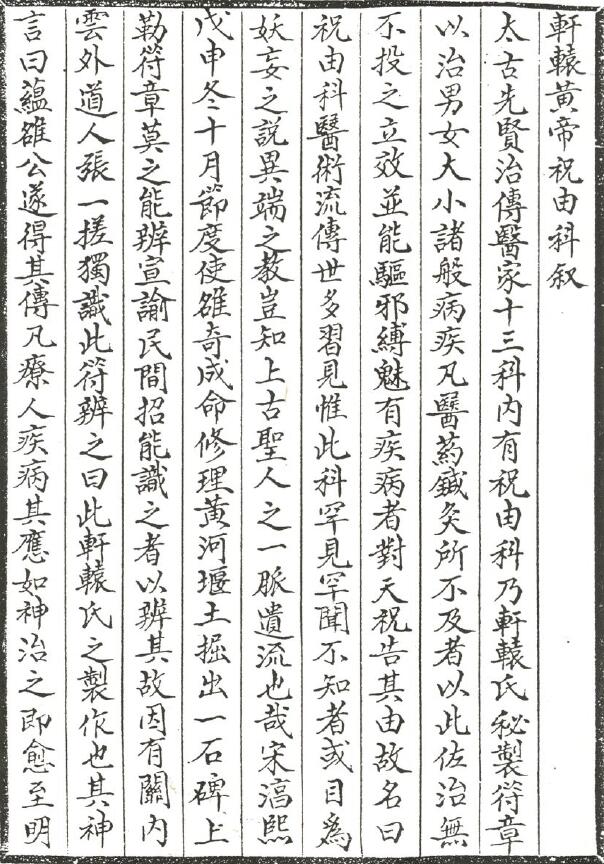 軒轅黃帝祝由科叙
太古先賢治傳醫家十三科內有祝由科乃軒轅氏秘製符章
以治男女大小諸般病疾凡醫药鍼灸所不及者以此佐治無
不投之立效並能驅邪縛魅有疾病者對天祝告其由故名曰
祝由科醫術流傳世多習見惟此科罕見罕聞不知者或目為
妖妄之説異端之教豈知上古聖人之一脈遺流也哉宋淳熙
戊申冬十月節度使雒奇成命修理黃河堰土掘出一石碑上
勒符章莫之能辨宣諭民間招能識之者以辨其故因有關內
雲外道人張一搓獨識此符辨之曰此軒轅氏之製作也其神
言曰蘊雒公遂得其傳凡療人疾病其應如神治之即愈至明